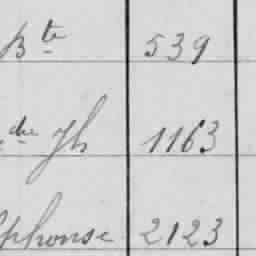 Bte 539
Jh 1163
phonse 2123